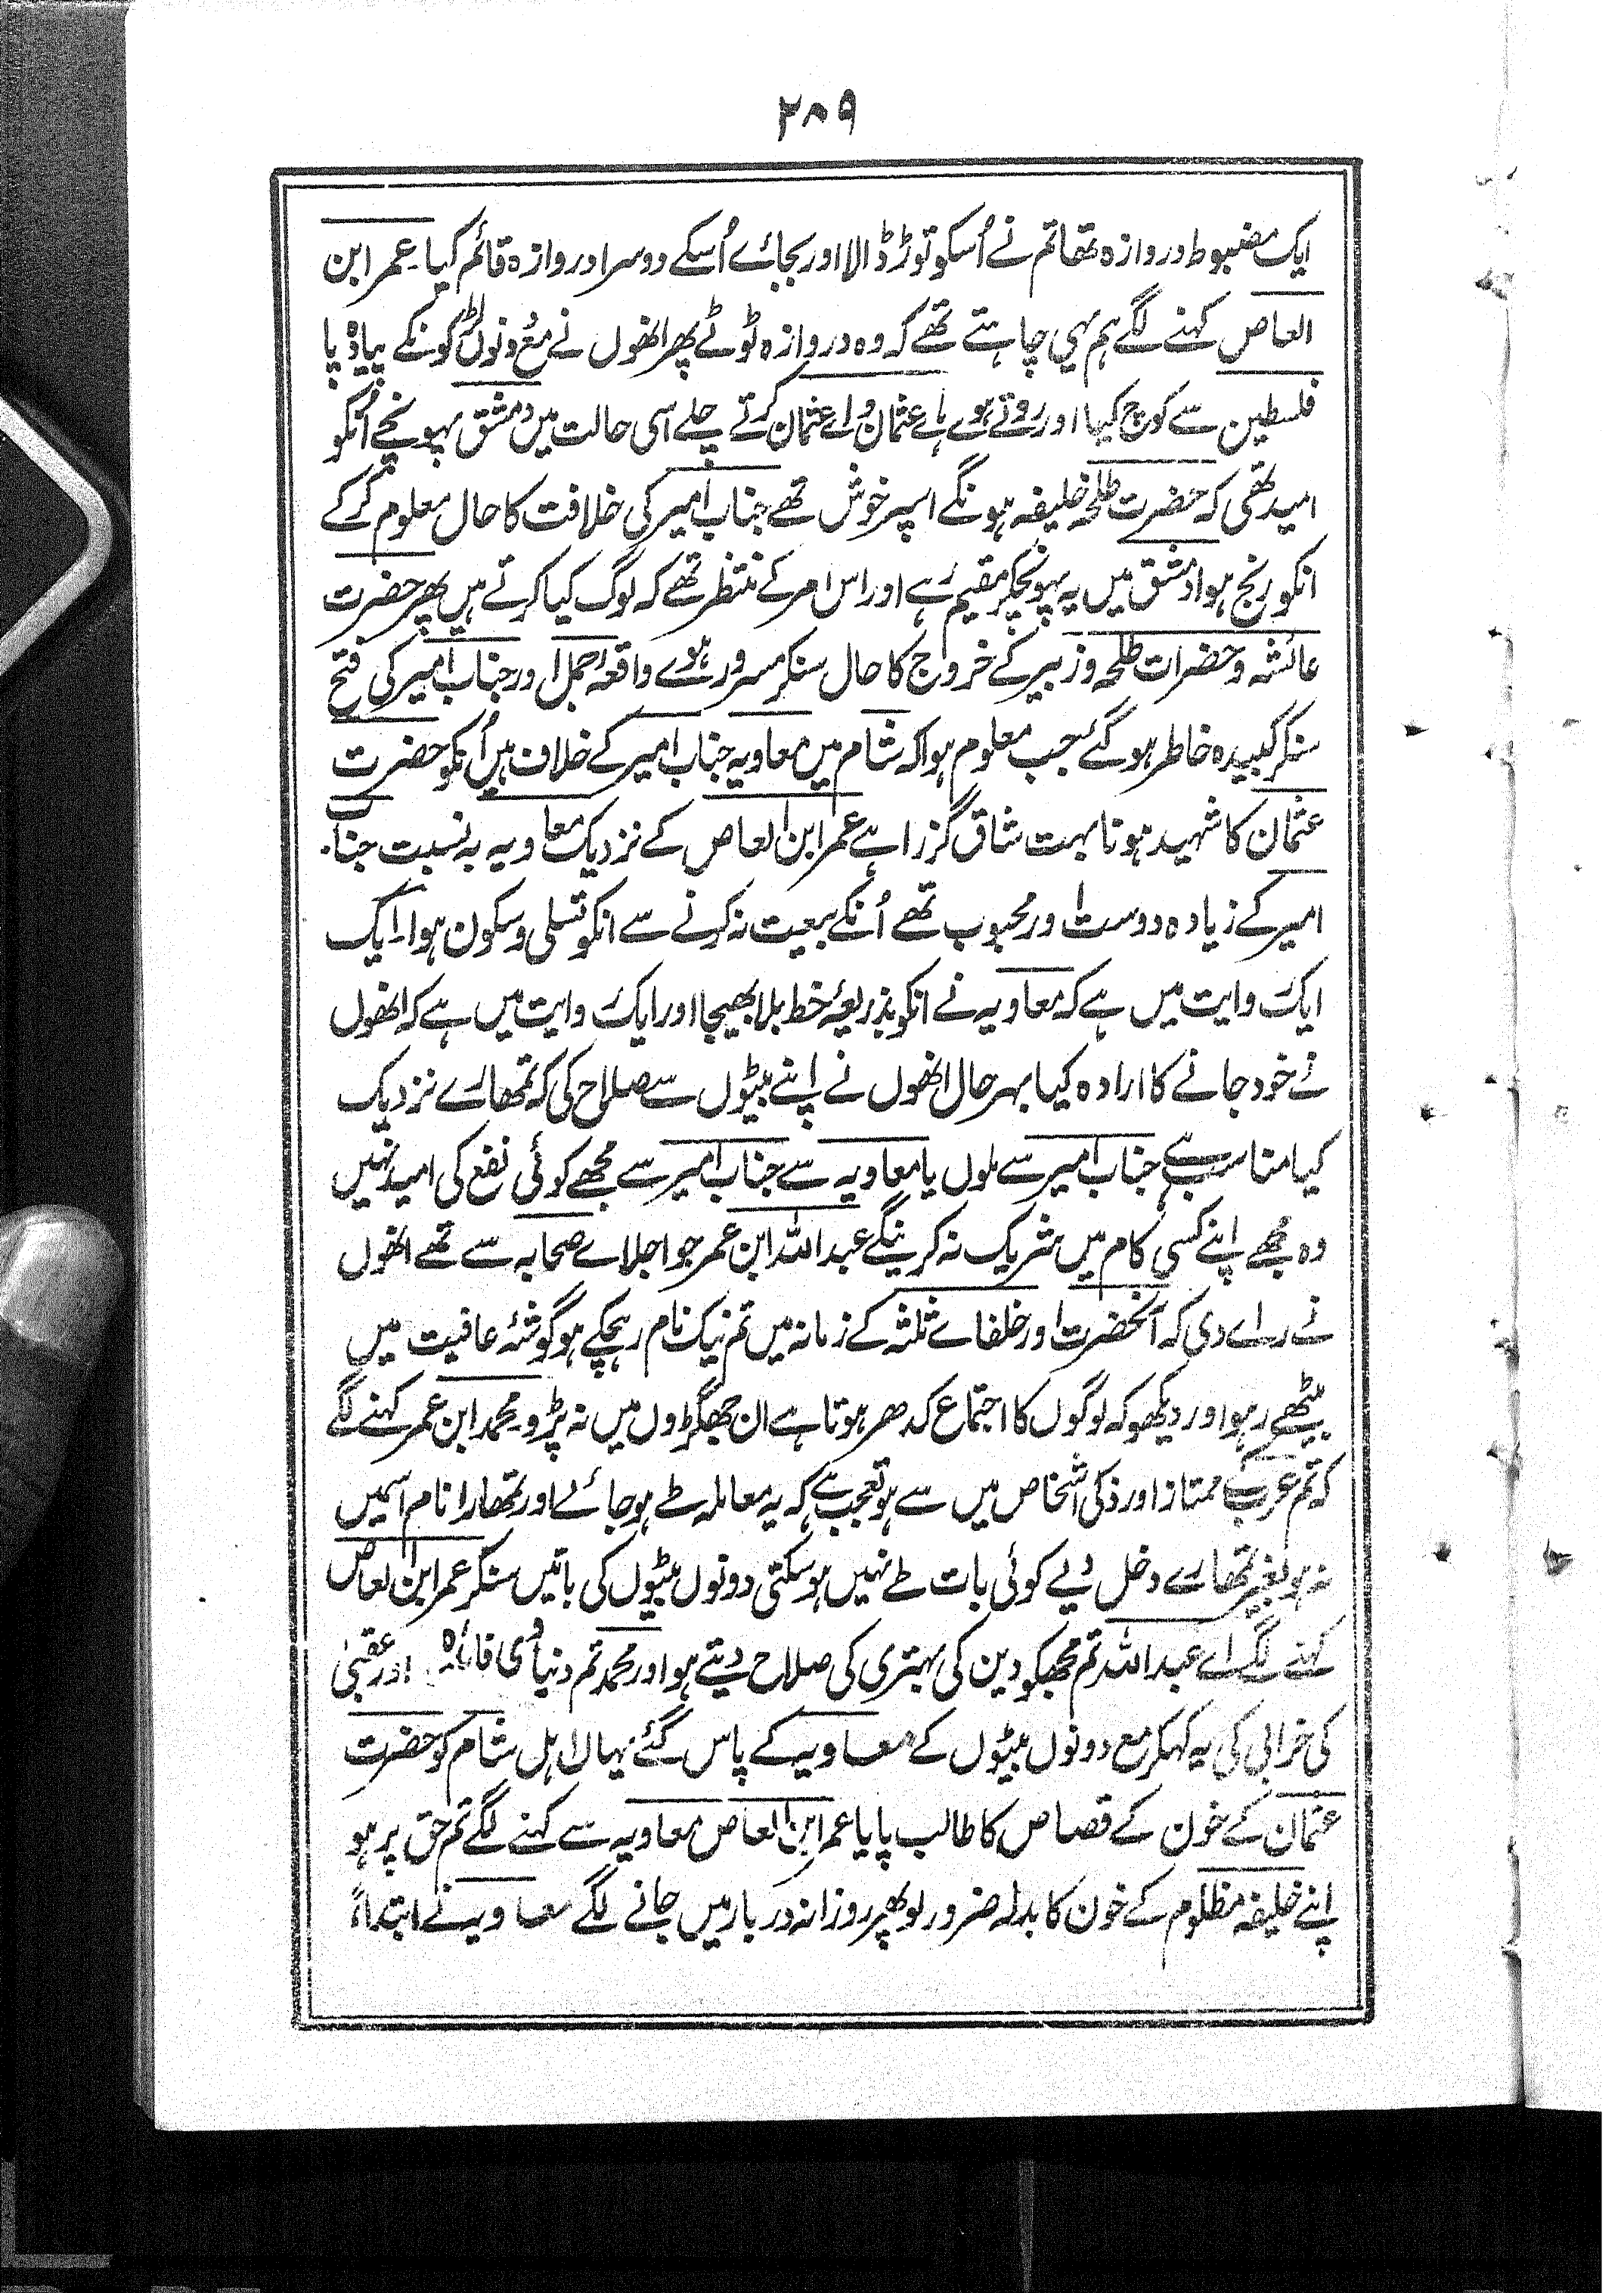 ۲۸۹
ایک مضبوط دروازہ تھا تم نے اُسکو توڑ ڈالا اور بجائے اُسکے دوسرا دروازہ قائم کیا۔ عمر ابن
العاص کہنے لگے ہم یہی چاہتے تھے کہ وہ دروازہ ٹوٹے پھر انھوں نے مع دونوں لڑکونکے پیادہ پا
فلسطین سے کوچ کیا اور روتے ہوے ہاے عثمان واے عثمان کرتے چلے اسی حالت میں دمشق پہونچے اُنکو
امید تھی کہ حضرت طلحہ خلیفہ ہونگے اسپر خوش تھے جناب امیر کی خلافت کا حال معلوم کرکے
انکو رنج ہوا دمشق میں یہ پہونچکر مقیم رہے اور اس امر کے منتظر تھے کہ لوگ کیا کرتے ہیں پھر حضرت
عائشہ و حضرات طلحہ و زبیر کے خروج کا حال سنکر مسرور ہوے واقعہ جمل اور جناب امیر کی فتح
سنکر کبیدہ خاطر ہو گئے جب معلوم ہوا کہ شام میں معاویہ جناب امیر کے خلاف ہیں اُنکو حضرت
عثمان کا شہید ہونا بہت شاق گزرا ہے عمر ابن العاص کے نزدیک معاویہ بہ نسبت جناب
امیر کے زیادہ دوست اور محبوب تھے اُنکے بیعت نہ کرنے سے انکو تسلی و سکون ہوا۔ ایک
ایک روایت میں ہے کہ معاویہ نے انکو بذریعۂ خط بلا بھیجا اور ایک روایت میں ہے کہ انھوں
نے خود جانے کا ارادہ کیا بہر حال انھوں نے اپنے بیٹوں سے صلاح کی کہ تمھارے نزدیک
کیا مناسب ہے جناب امیر سے ملوں یا معاویہ سے جناب امیر سے مجھے کوئی نفع کی امید نہیں
وہ مجھے اپنے کسی کام میں شریک نہ کرینگے عبد اللہ ابن عمر جو اجلاے صحابہ سے تھے انھوں
نے راے دی کہ آنحضرت اور خلفاے ثلثہ کے زمانہ میں تم نیک نام رہچکے ہو گوشۂ عافیت میں
بیٹھے رہو اور دیکھو کہ لوگوں کا اجتماع کدھر ہوتا ہے ان جھگڑوں میں نہ پڑو۔ محمد ابن عمر کہنے لگے
کہ تم عرب کے ممتاز اور ذکی اشخاص میں سے ہو تعجب ہے کہ یہ معاملہ طے ہو جائے اور تمھارا نام اسمیں
نہ ہو بغیر تمھارے دخل دیے کوئی بات طے نہیں ہو سکتی دونوں بیٹوں کی باتیں سنکر عمر ابن العاص
کہنے لگے اے عبد اللہ تم مجھکو دین کی بہتری کی صلاح دیتے ہو اور محمد تم دنیا وی فائدہ اور عقبیٰ
کی خرابی کی یہ کہکر مع دونوں بیٹوں کے معاویہ کے پاس گئے یہاں اہل شام کو حضرت
عثمان کے خون کے قصاص کا طالب پایا عمر ابن العاص معاویہ سے کہنے لگے تم حق پر ہو
اپنے خلیفہ مظلوم کے خون کا بدلہ ضرور لو پھر روزانہ دربار میں جانے لگے معاویہ نے ابتداءً